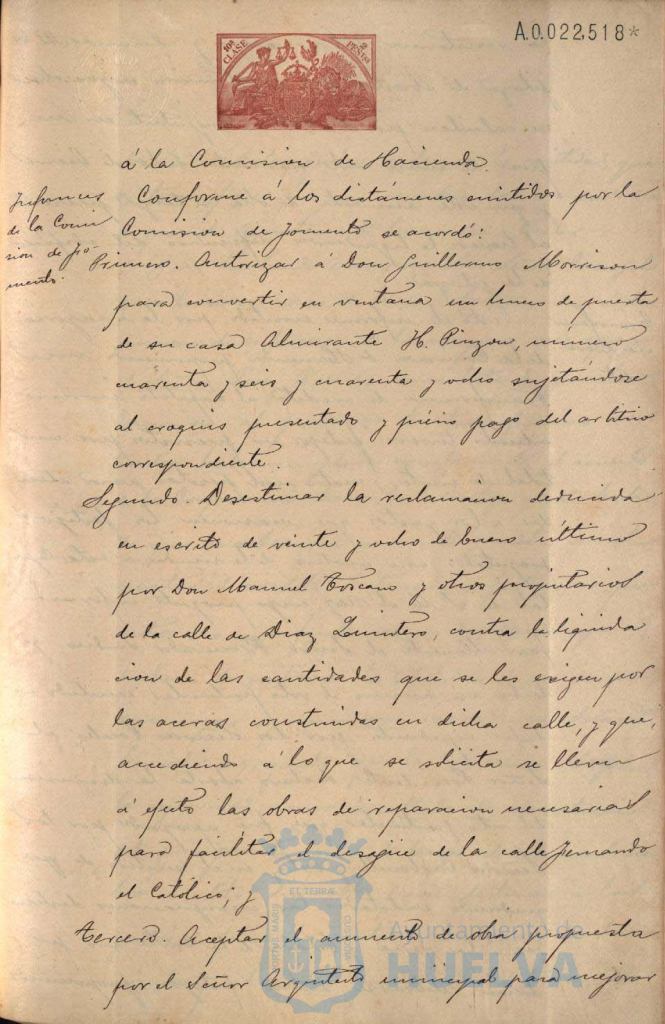 A.0.022,518*
10ª CLASE
2 PESETAS
á la Comision de Hacienda.
Informes de la Comi
sion de Fo-
mento.
Conforme á los dictámenes emitidos por la
Comision de Fomento se acordó:
Primero. Autorizar á Don Guillermo Morrison
para convertir en ventana un hueco de puerta
de su casa Almirante H. Pinzon, número
cuarenta y seis y cuarenta y ocho sujetándose
al croquis presentado y prévio pago del arbitrio
correspondiente.
Segundo. Desestimar la reclamacion deducida
en escrito de veinte y ocho de Enero último
por Don Manuel Toscano y otros propietarios
de la calle de Diaz Quintero, contra la liquida
cion de las cantidades que se les exigen por
las aceras construidas en dicha calle, y que,
accediendo á lo que se solicita se lleven
á efecto las obras de reparacion necesarias
para facilitar el desagüe de la calle Fernando
el Católico; y
Tercero. Aceptar el aumento de obra propuesta
por el Señor Arquitecto municipal para mejorar
ET TERRAE
PORTUS MARIS
CUSTODIA
Ayuntamiento de
HUELVA